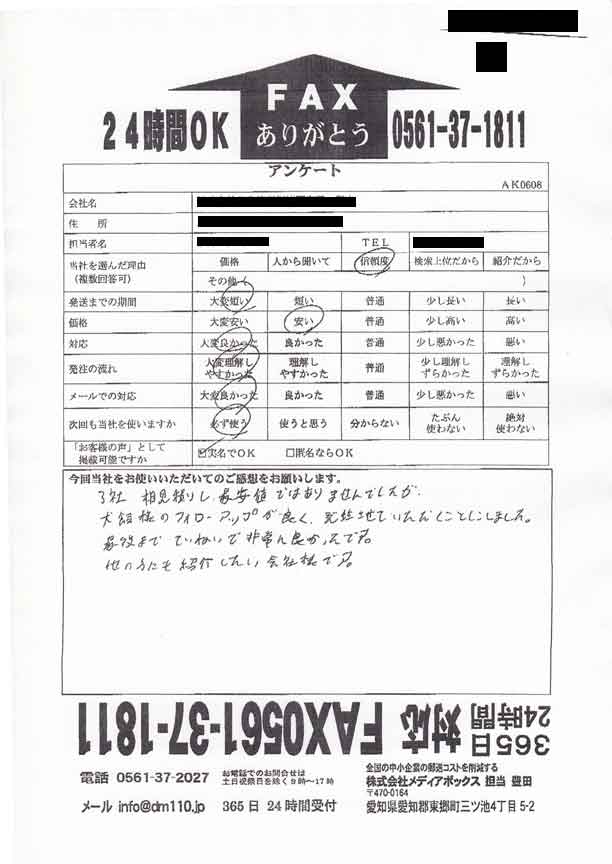 FAX
ありがとう
24時間OK
0561-37-1811
アンケート
AK0608
会社名
住　所
担当者名
TEL
当社を選んだ理由
(複数回答可)
価格 人から聞いて 信頼度 検索上位だから 紹介だから
その他 ( )
発送までの期間 大変短い 短い 普通 少し長い 長い
価格 大変安い 安い 普通 少し高い 高い
対応 大変良かった 良かった 普通 少し悪かった 悪い
発注の流れ 大変理解しやすかった 理解しやすかった 普通 少し理解しずらかった 理解しずらかった
メールでの対応 大変良かった 良かった 普通 少し悪かった 悪い
次回も当社を使いますか 必ず使う 使うと思う 分からない たぶん使わない 絶対使わない
「お客様の声」として
掲載可能ですか
☑実名でOK □匿名ならOK
今回当社をお使いいただいてのご感想をお願いします。
3社 相見積りし、最安値ではありませんでしたが、
様のフォローアップが良く、
最後まで ていねいで非常に良かったです。
他の方にも紹介したい会社様です。
365日
24時間
対応 FAX0561-37-1811
電話 0561-37-2027
お電話でのお問合せは
土日祝祭日を除く9時〜17時
全国の中小企業の郵送コストを削減する
株式会社メディアボックス 担当 豊田
〒470-0164
メール info@dm110.jp 365日 24時間受付
愛知県愛知郡東郷町三ツ池4丁目5-2